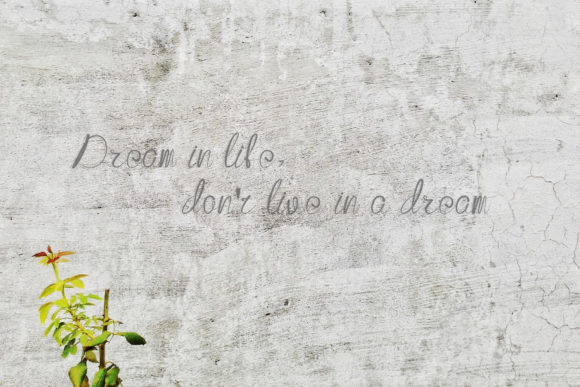 Dream in life,
don't live in a dream